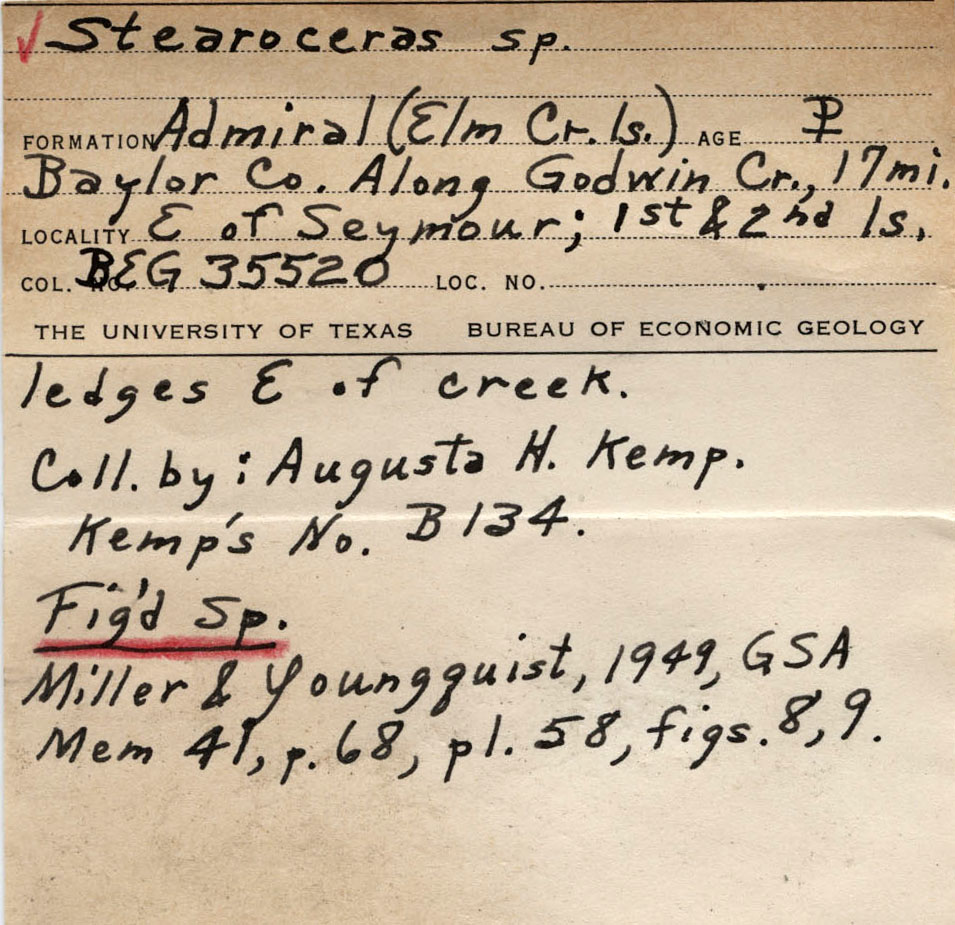 ✓ Stearoceras sp.
FORMATION Admiral (Elm Cr. ls.) AGE P
Baylor Co. Along Godwin Cr., 17 mi.
LOCALITY E of Seymour; 1st & 2nd ls.
COL. NO. BEG 35520 LOC. NO.
THE UNIVERSITY OF TEXAS BUREAU OF ECONOMIC GEOLOGY
ledges E of creek.
Coll. by: Augusta H. Kemp.
Kemp's No. B134.
Fig'd Sp.
Miller & Youngquist, 1949, GSA
Mem 41, p. 68, pl. 58, figs. 8, 9.